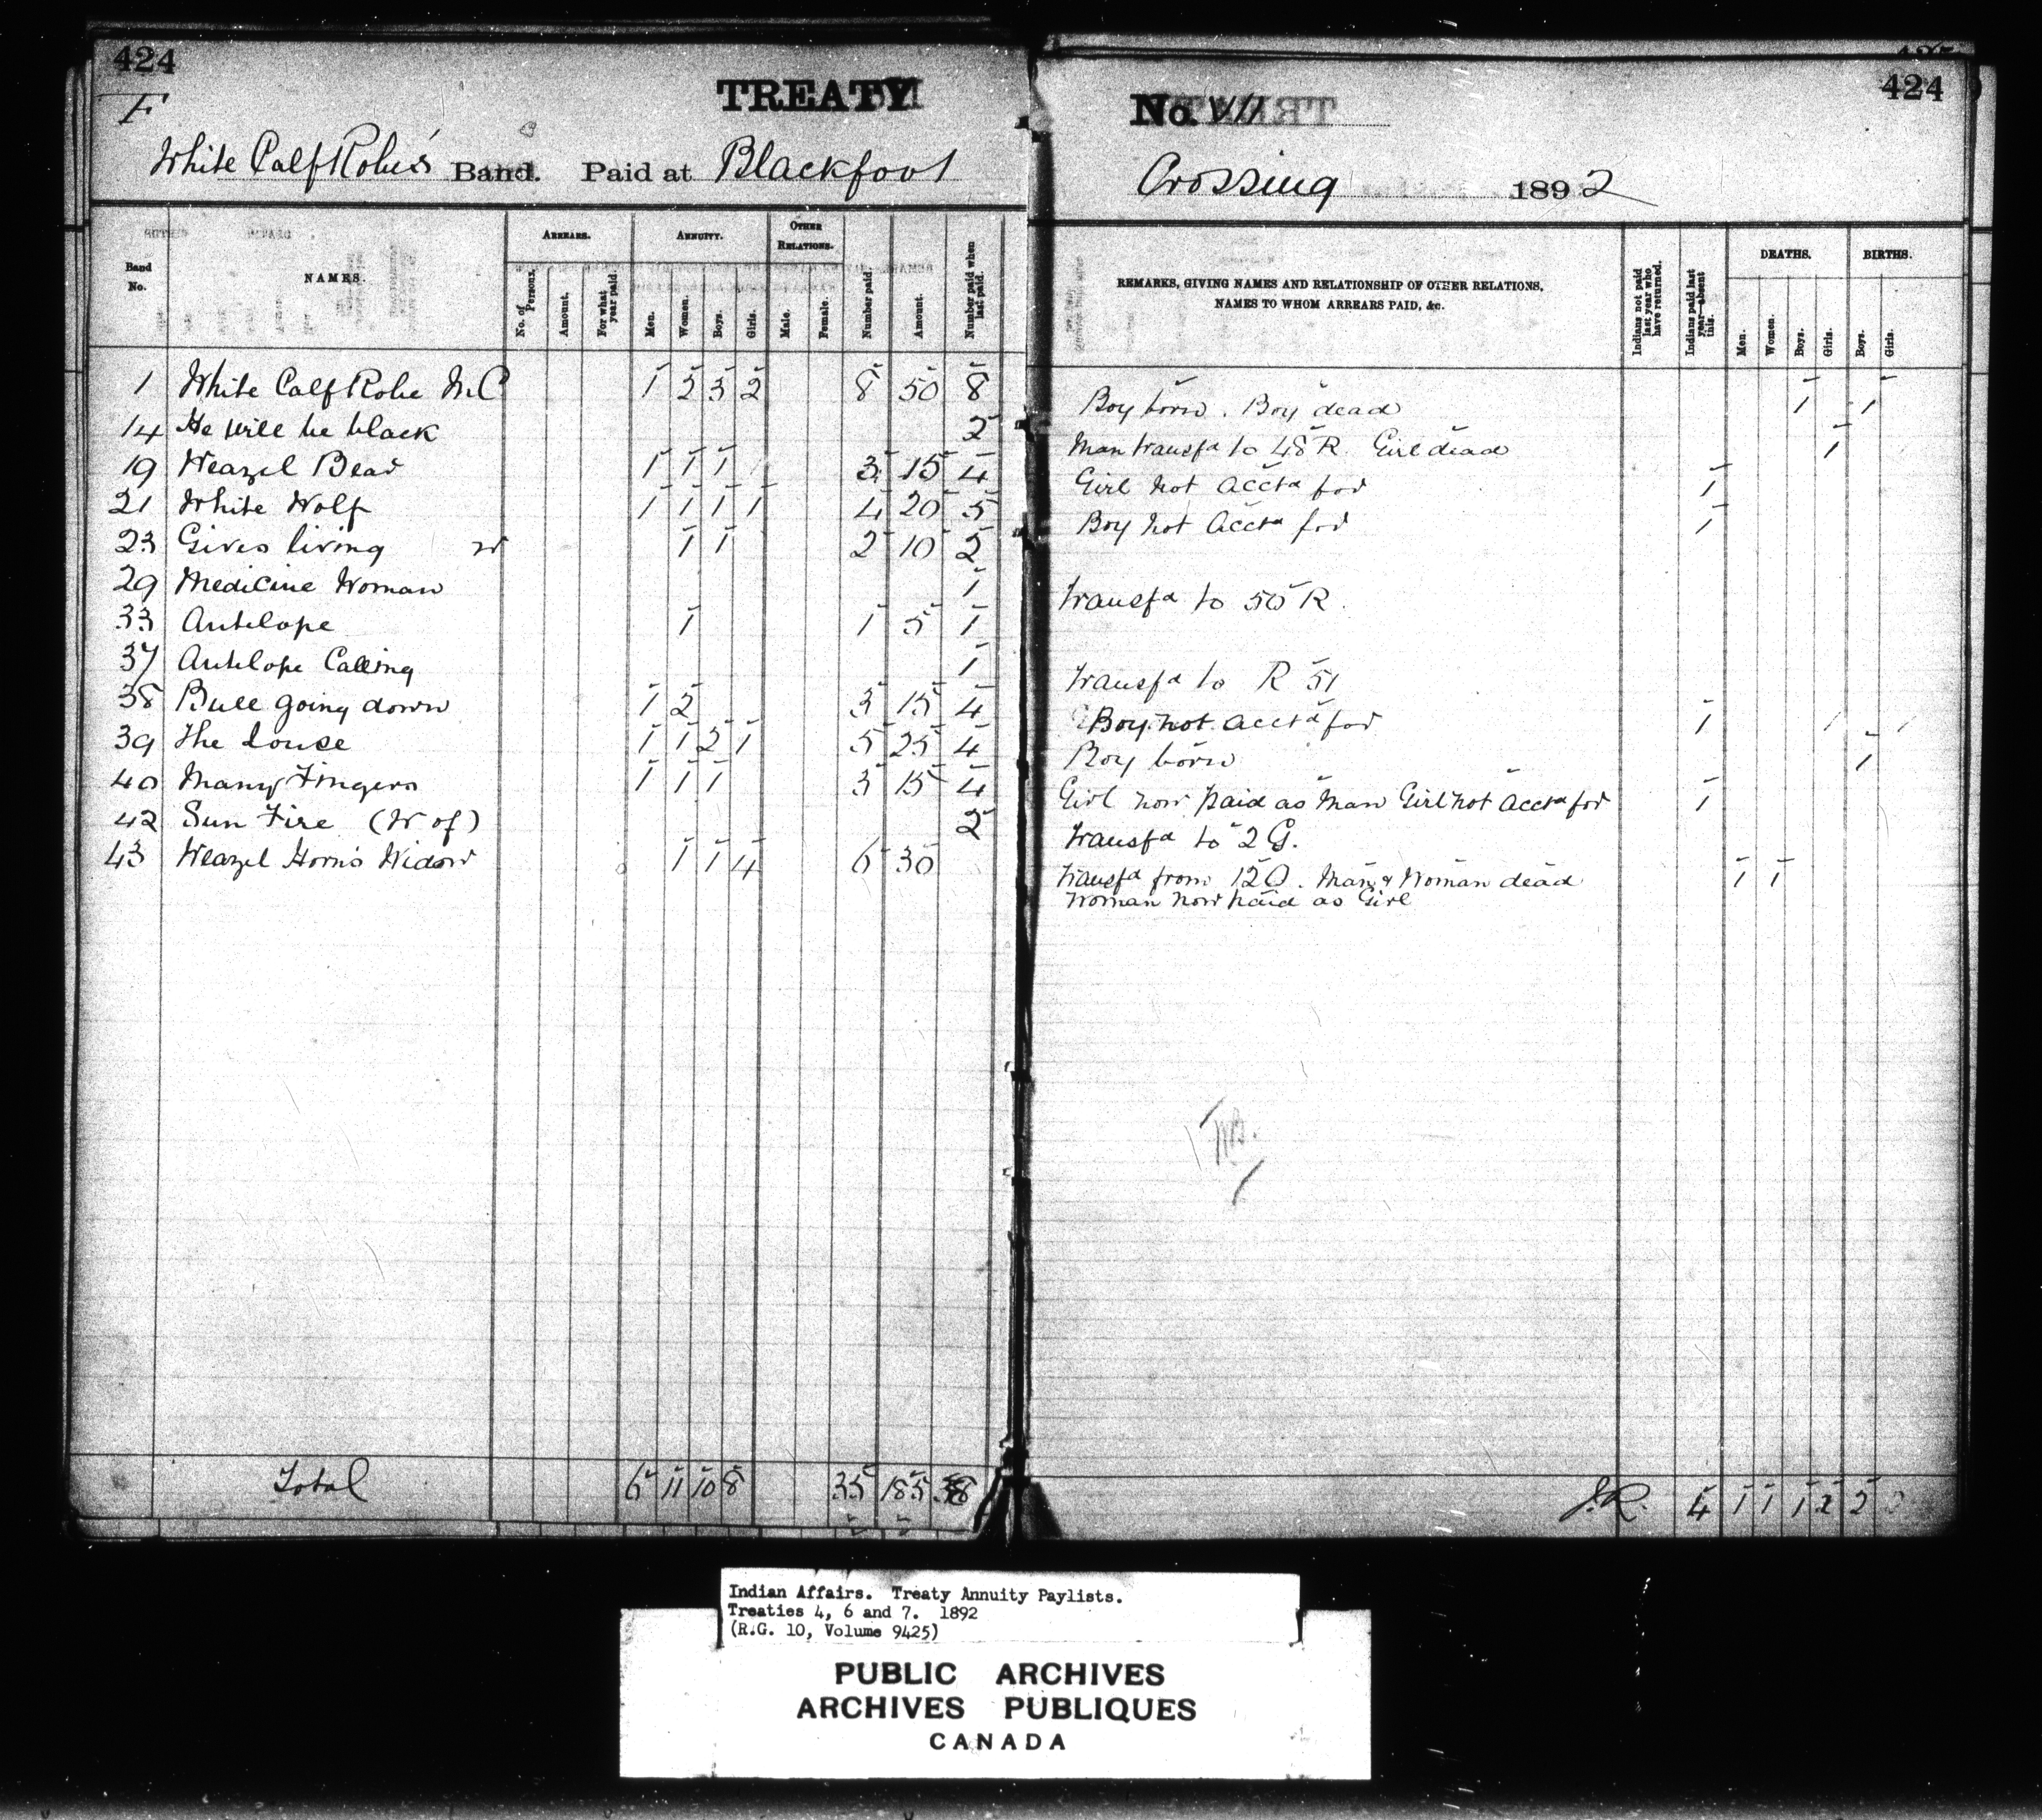 424
F
TREATY
White Calf Robe's Band. Paid at Blackfoot
Band No.
NAMES.
ARREARS.
No. of Persons.
Amount.
For what year paid.
ANNUITY.
Men.
Women.
Boys.
Girls.
OTHER RELATIONS.
Male.
Female.
Number paid.
Amount.
Number paid when last paid.
1 White Calf Robe M.C 1 2 3 2 8 50 8
14 He will be black 2
19 Weazel Bear 1 1 1 3 15 4
21 White Wolf 1 1 1 1 4 20 5
23 Gives living W 1 1 2 10 2
29 Medicine Woman 1
33 Antelope 1 1 5 1
37 Antelope Calling 1
38 Bull going down 1 2 3 15 4
39 The Louse 1 1 2 1 5 25 4
40 Many Fingers 1 1 1 3 15 4
42 Sun Fire (W of) 2
43 Weazel Horn's Widow 1 1 4 6 30
Total 6 11 10 8 35 185 38
424
No. VII
Crossing 1892
REMARKS, GIVING NAMES AND RELATIONSHIP OF OTHER RELATIONS,
NAMES TO WHOM ARREARS PAID, &c.
Indians not paid last year who have returned.
Indians paid last year—absent this.
DEATHS.
Men.
Women.
Boys.
Girls.
BIRTHS.
Boys.
Girls.
Boy born. Boy dead 1 1
Man transfd to 48 R. Girl dead 1
Girl not acctd for 1
Boy not acctd for 1
transfd to 50 R.
transfd to R 51
Boy not acctd for 1
Boy born 1
Girl now paid as Man Girl not acctd for 1
transfd to 2 G.
transfd from 12 O. Man & Woman dead 1 1
Woman now paid as Girl
J.R. 4 1 1 1 2 2
Indian Affairs. Treaty Annuity Paylists.
Treaties 4, 6 and 7. 1892
(R.G. 10, Volume 9425)
PUBLIC ARCHIVES
ARCHIVES PUBLIQUES
CANADA